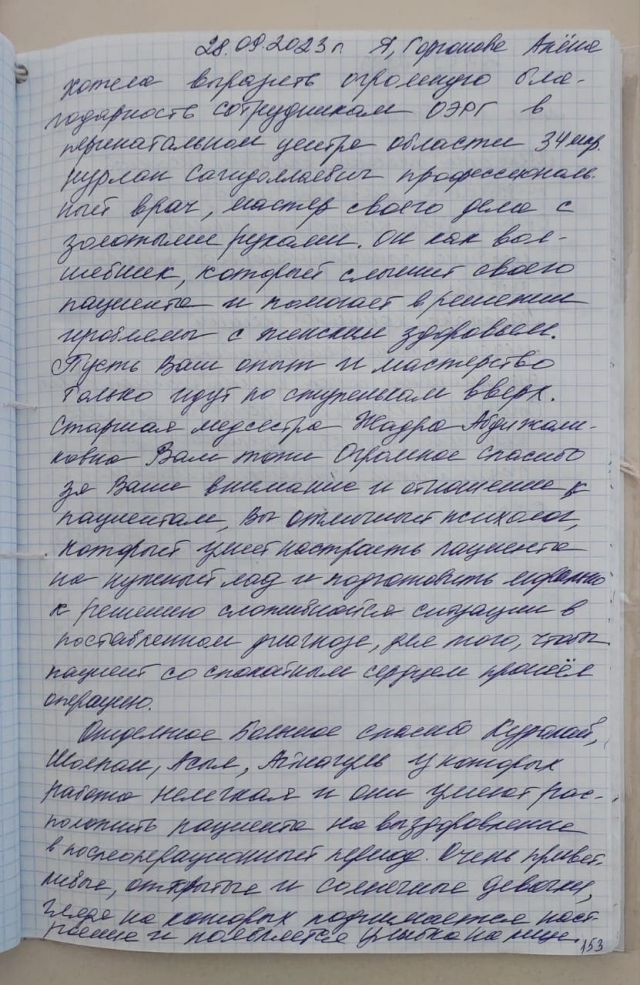 28.09.2023г. Я, Горланова Алёна
хотела выразить огромную бла-
годарность сотрудникам ОЭРГ в
перинатальном центре области 34 мкр.
Нурлан Сагидоллаевич профессиональ-
ный врач, мастер своего дела с
золотыми руками. Он как вол-
шебник, который слышит своего
пациента и помогает в решении
проблемы с женским здоровьем.
Пусть Ваш опыт и мастерство
только идут по ступенькам вверх.
Старшая медсестра Жадра Абдижали-
ковна Вам тоже Огромное спасибо
за Ваше внимание и отношение к
пациентам, Вы отличный психолог,
который умеет настроить пациента
на нужный лад и подготовить морально
к решению сложившейся ситуации в
поставленном диагнозе, для того, чтобы
пациент со спокойным сердцем прошёл
операцию.
Отдельное Большое спасибо Куралай,
Шолпан, Асыл, Айнагуль у которых
работа нелегкая и они умеют рас-
положить пациента на выздоровление
в послеоперационный период. Очень привет-
ливые, открытые и солнечные девочки,
глядя на которых поднимается наст
роение и появляется улыбка на лице.
153